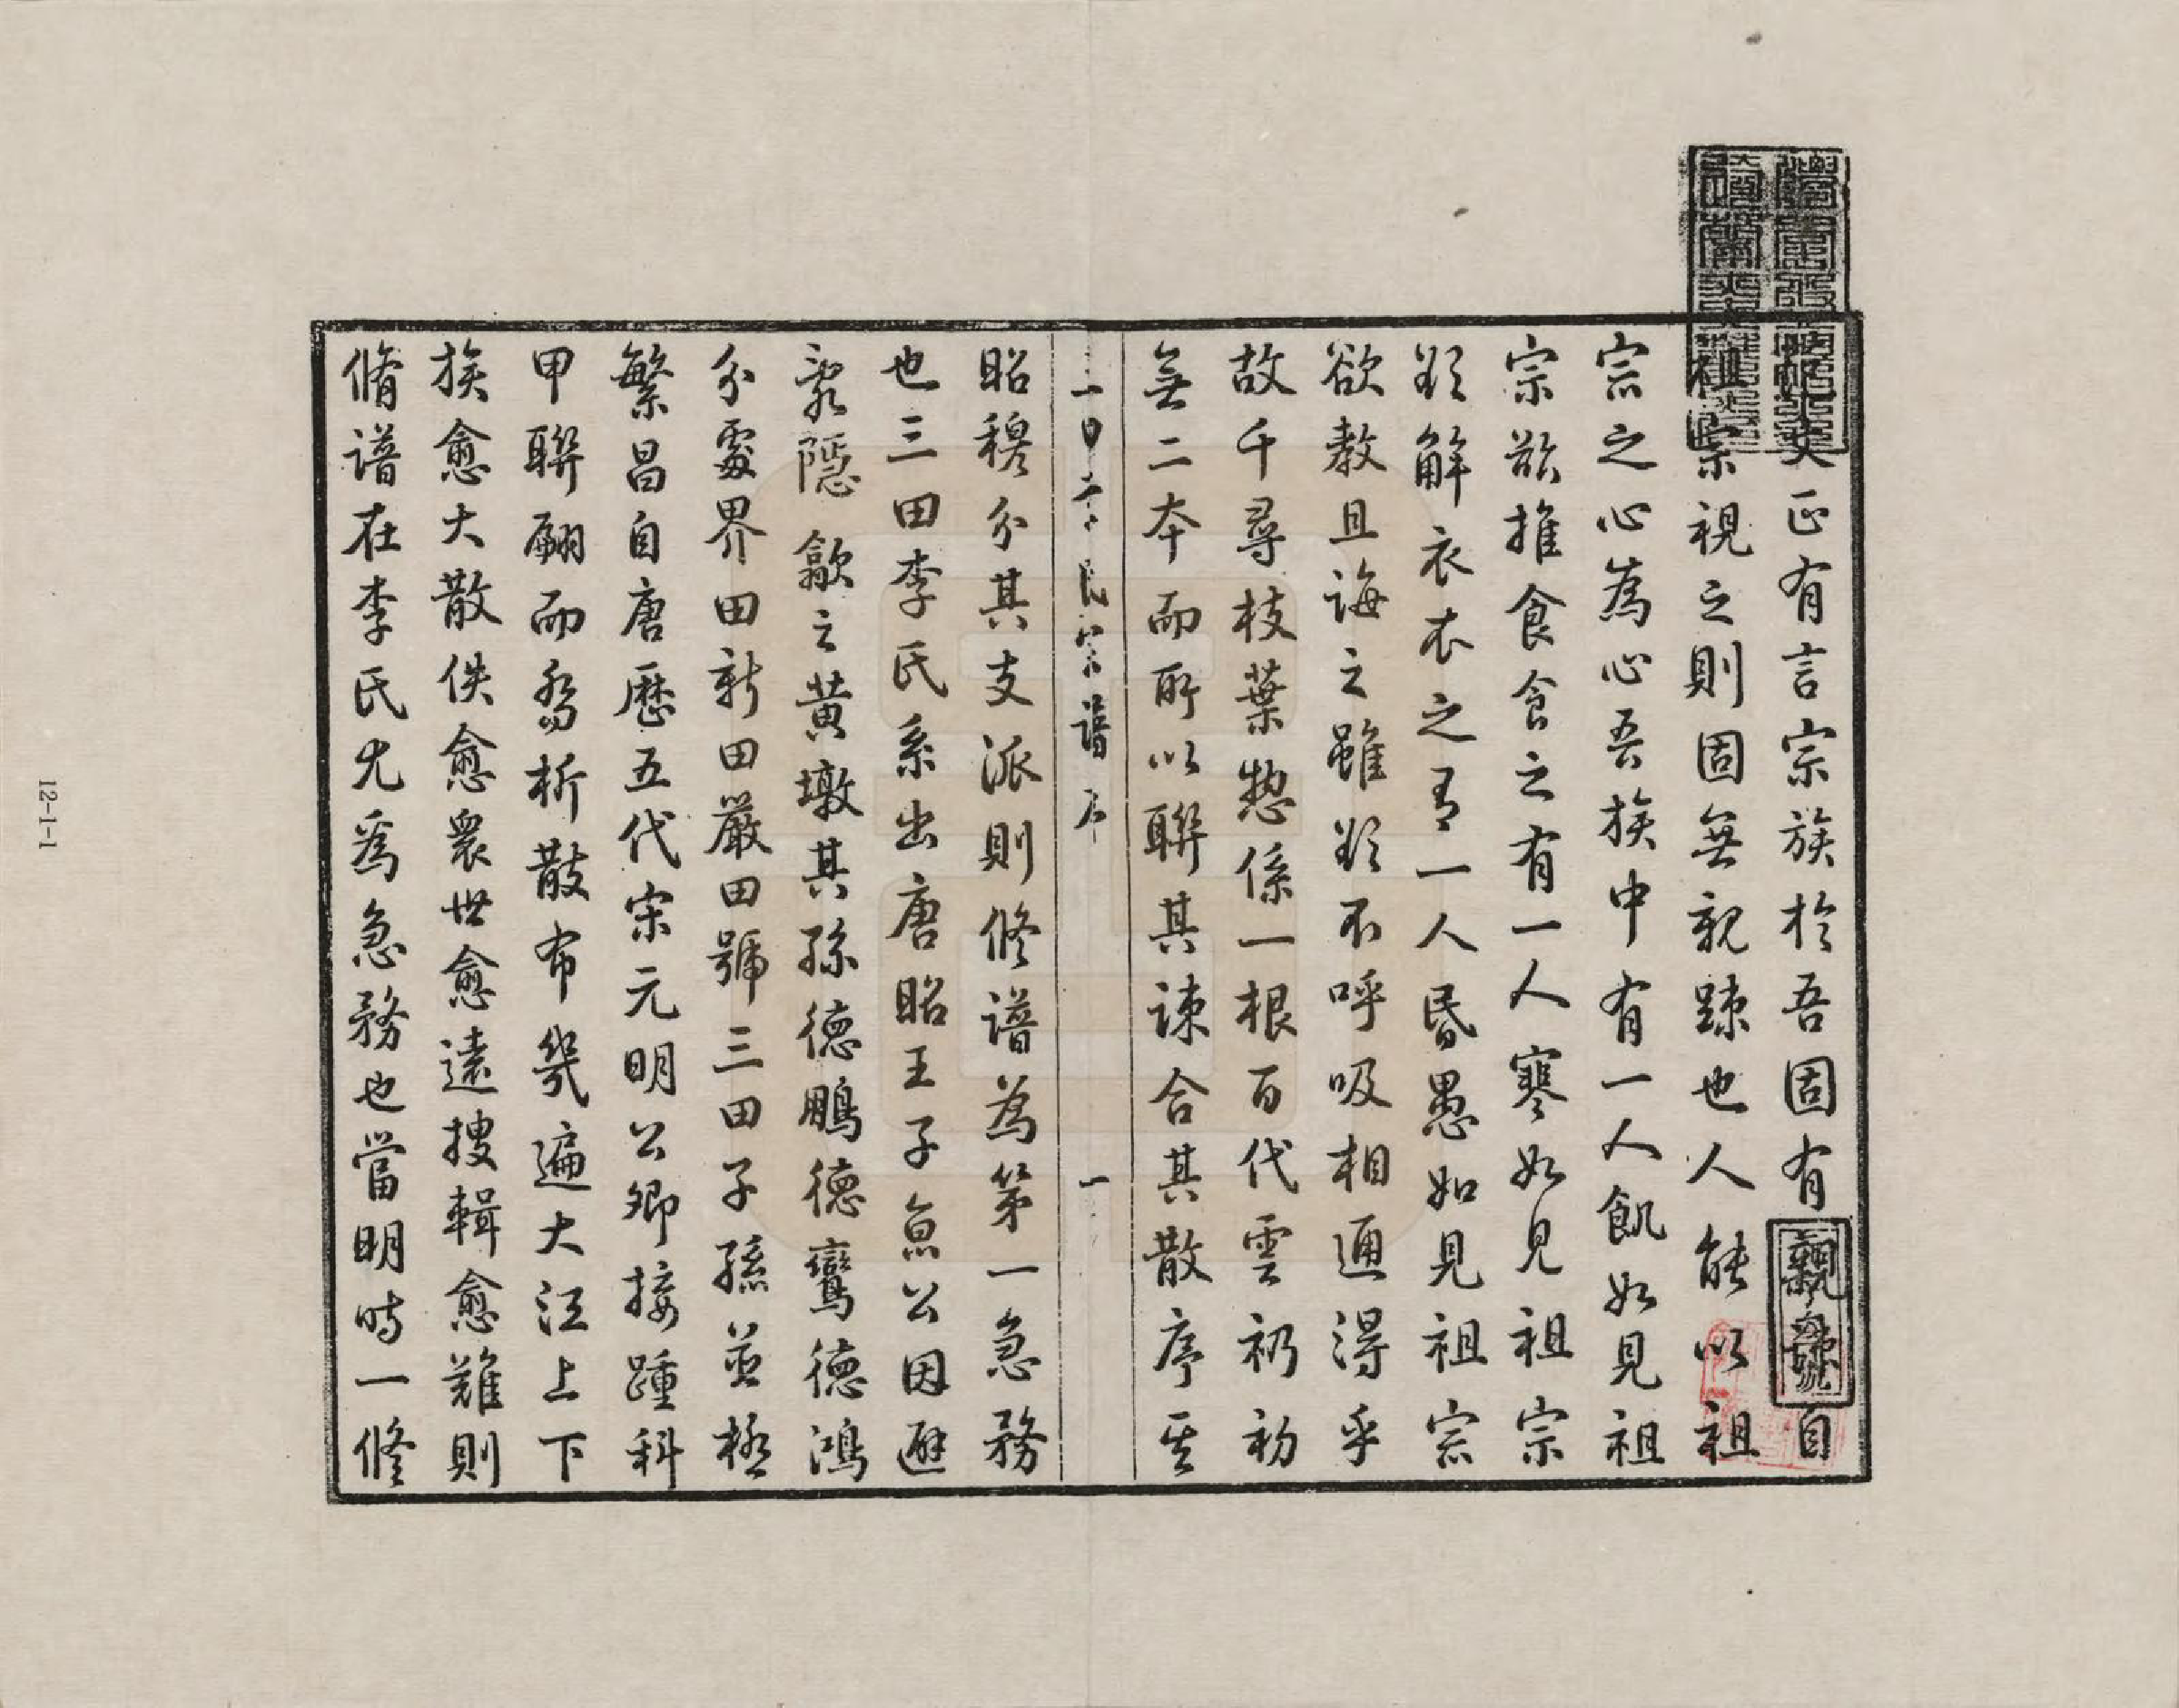 文正有言宗族於吾固有親疎自
祖宗視之則固無親疎也人能以祖
宗之心為心吾族中有一人飢如見祖
宗欲推食食之有一人寒如見祖宗
欲解衣衣之有一人昏愚如見祖宗
欲教且誨之雖欲不呼吸相通得乎
故千尋枝葉揔係一根百代雲礽初
無二本而所以聯其疎合其散序其
三田李氏宗譜 序 一
昭穆分其支派則修譜為第一急務
也三田李氏系出唐昭王子京公因避
亂隱歙之黃墩其孫德鵬德鸞德鴻
分處界田新田嚴田號三田子孫並極
繁昌自唐歷五代宋元明公卿接踵科
甲聯翩而分析散布幾遍大江上下
族愈大散佚愈衆世愈遠搜輯愈難則
脩譜在李氏尤為急務也當明時一修
12-1-1